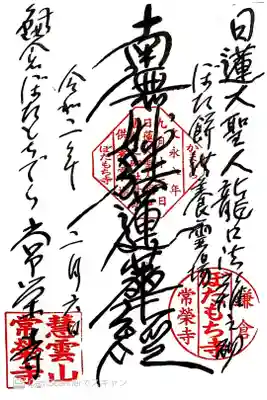 日蓮大聖人龍口法難之砌
ぼた餅供養霊場
南無妙法蓮華経
文永八年
九月十二日
ぼたもち寺
鎌倉
ぼたもち寺
常榮寺
令和二年 二月六日
鎌倉ぼたもちでら 常榮寺
慧雲山
常榮寺